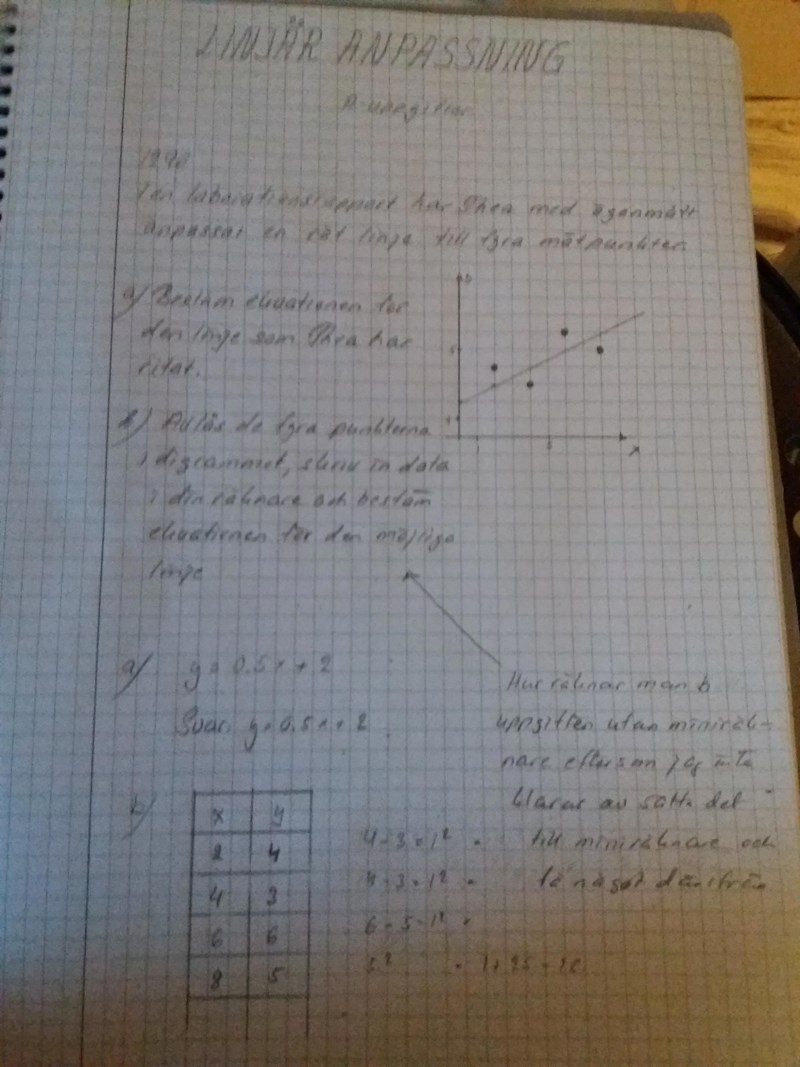 LINJÄR ANPASSNING
A-uppgifter
I en laborationsrapport har Thea med ögonmått
anpassat en rät linje till fyra mätpunkter.
a) Bestäm ekvationen för
den linje som Thea har
ritat.
b) Avläs de fyra punkterna
i digrammet, skriv in data
i din räknare och bestäm
ekvationen för den möjliga
linje
y
x
a) y = 0.5x + 2
Svar: y = 0.5x + 2
Hur räknar man b
uppgiften utan miniräk-
nare eftersom jag inte
klarar av sätta det
till miniräknare och
få något därifrån
b)
x y
2 4
4 3
6 6
8 5
4-3=1²
4-3=1²
6-5=1²